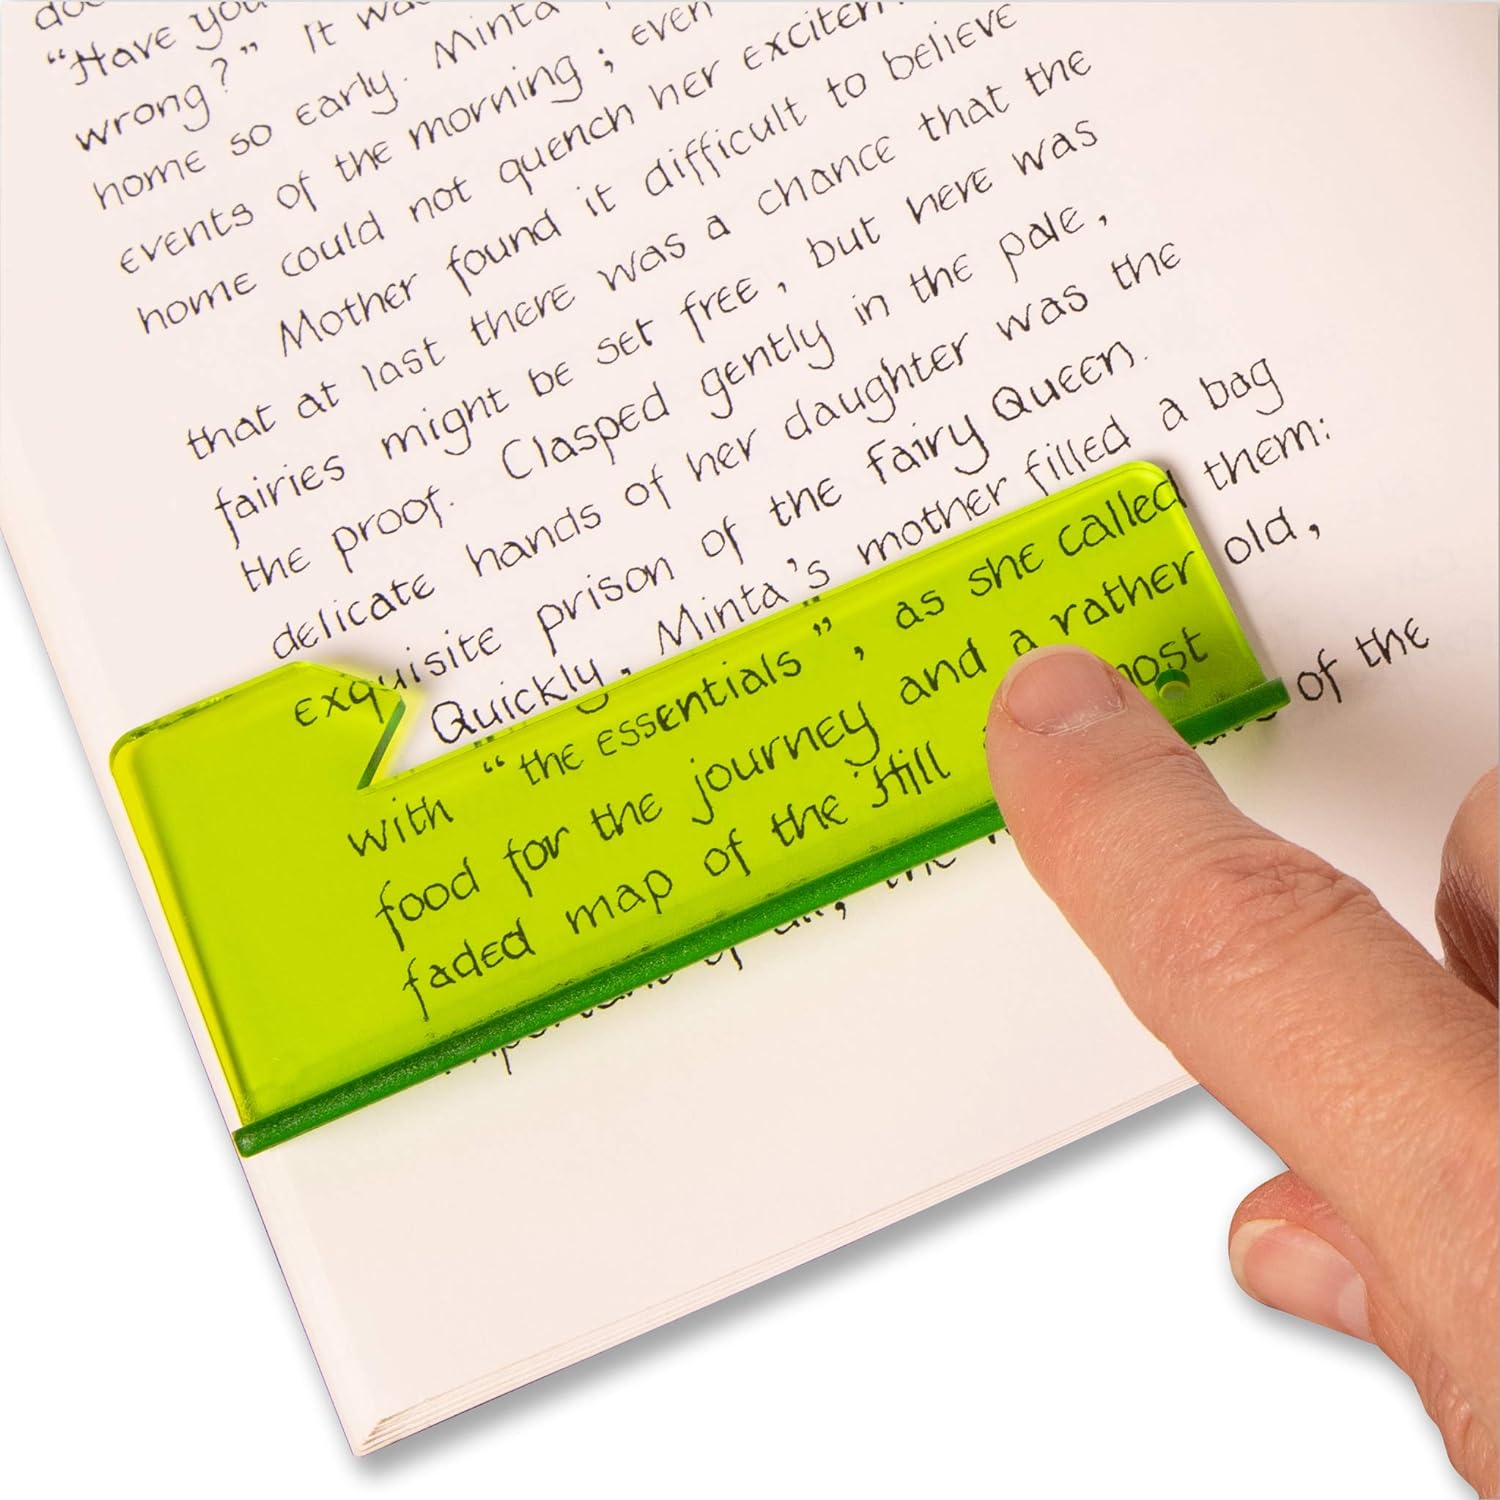 "Have you
wrong?" It was
home so early. Minta
events of the morning; even
home could not quench her
Mother found it difficult to believe
that at last there was a chance that the
fairies might be set free, but here was
the proof. Clasped gently in the pale,
delicate hands of her daughter was the
exquisite prison of the Fairy Queen.
Quickly, Minta's mother filled a bag
with "the essentials", as she called them:
food for the journey and a rather old,
faded map of the Hill most
of all, the of the